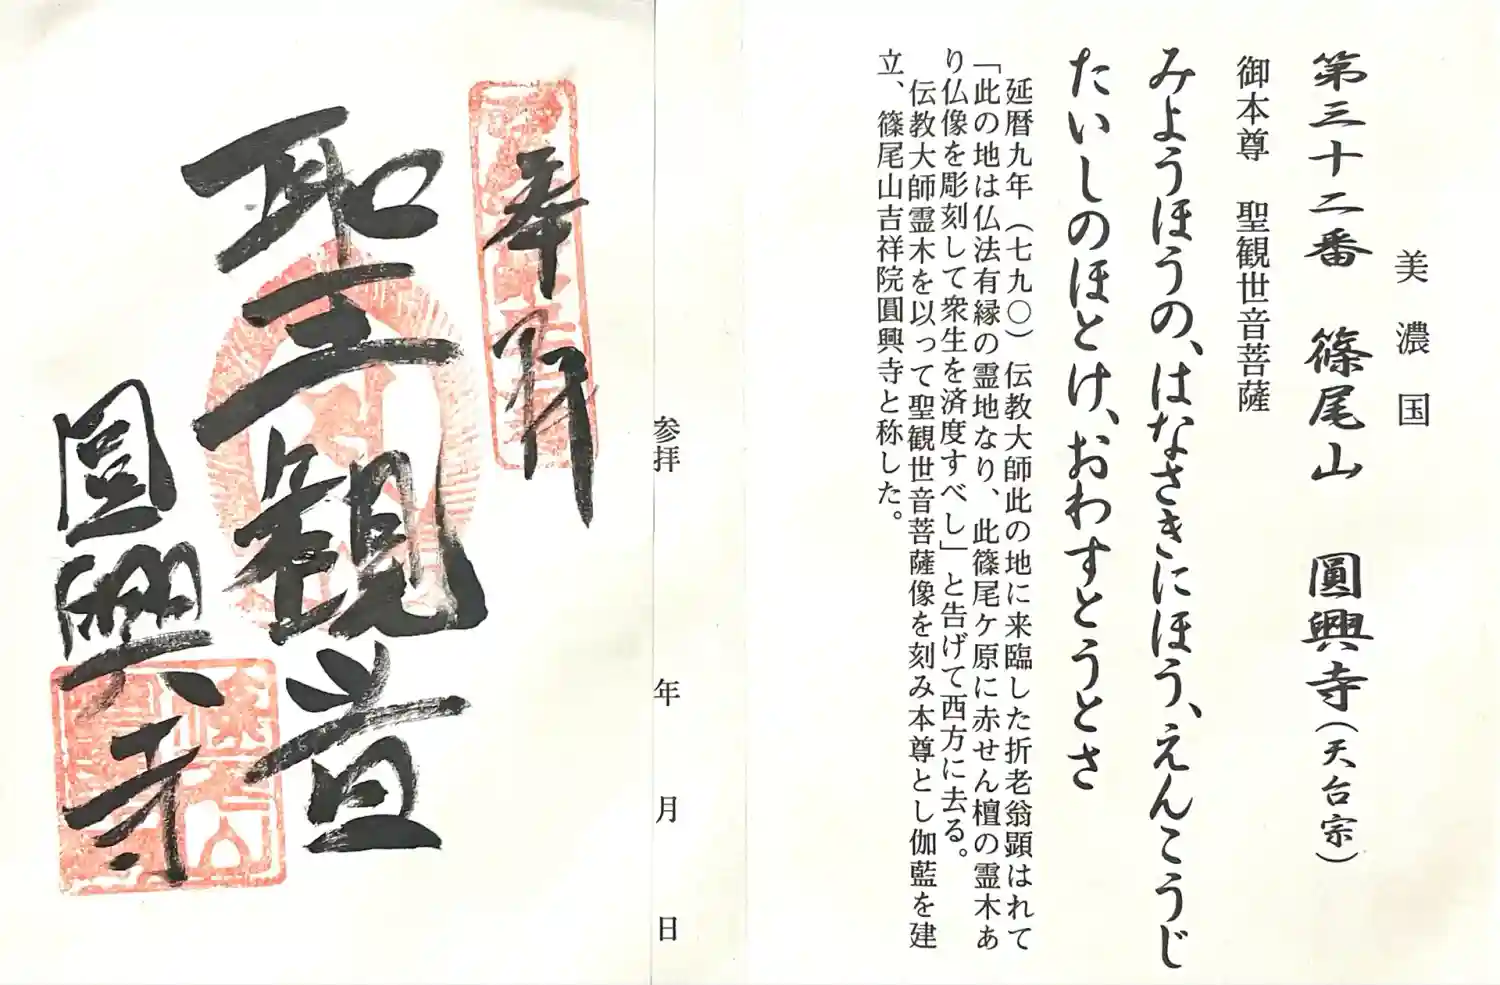 美濃国
第三十二番　篠尾山　圓興寺（天台宗）
御本尊　聖観世音菩薩
みようほうの、はなさきにほう、えんこうじ
たいしのほとけ、おわすとうとさ
延暦九年（七九〇）伝教大師此の地に来臨した折老翁顕はれて
「此の地は仏法有縁の霊地なり、此篠尾ケ原に赤せん檀の霊木あ
り仏像を彫刻して衆生を済度すべし」と告げて西方に去る。
伝教大師霊木を以って聖観世音菩薩像を刻み本尊とし伽藍を建
立、篠尾山吉祥院圓興寺と称した。
参拝　年　月　日
奉拝
聖観音
圓興寺